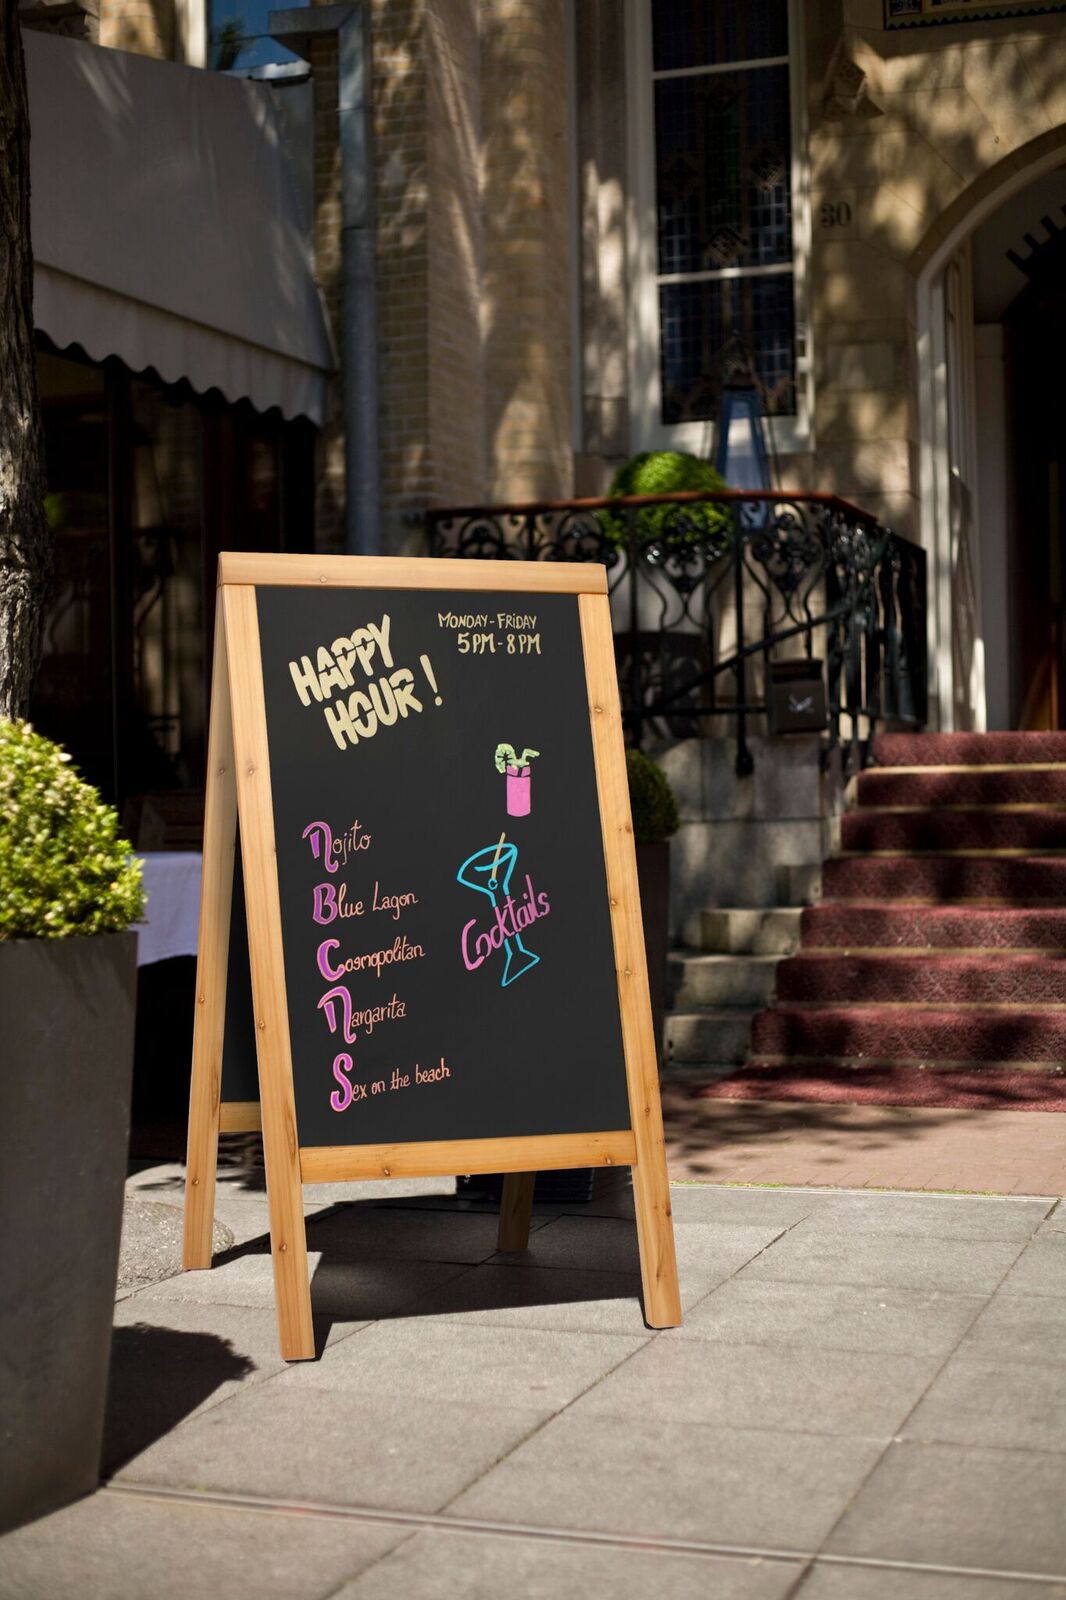 HAPPY
HOUR!
MONDAY-FRIDAY
5PM-8PM
Mojito
Blue Lagon
Cosmopolitan
Margarita
Sex on the beach
Cocktails
30